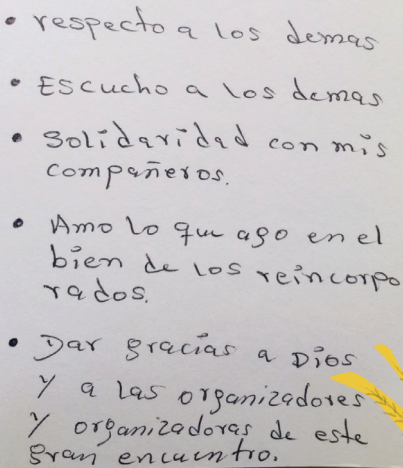 • respecto a los demas
• Escucho a los demas
• Solidaridad con mis
compañeros.
• Amo lo que ago en el
bien de los reincorpo
rados.
• Dar gracias a Dios
y a las organizadores
y organizadoras de este
gran encuentro.